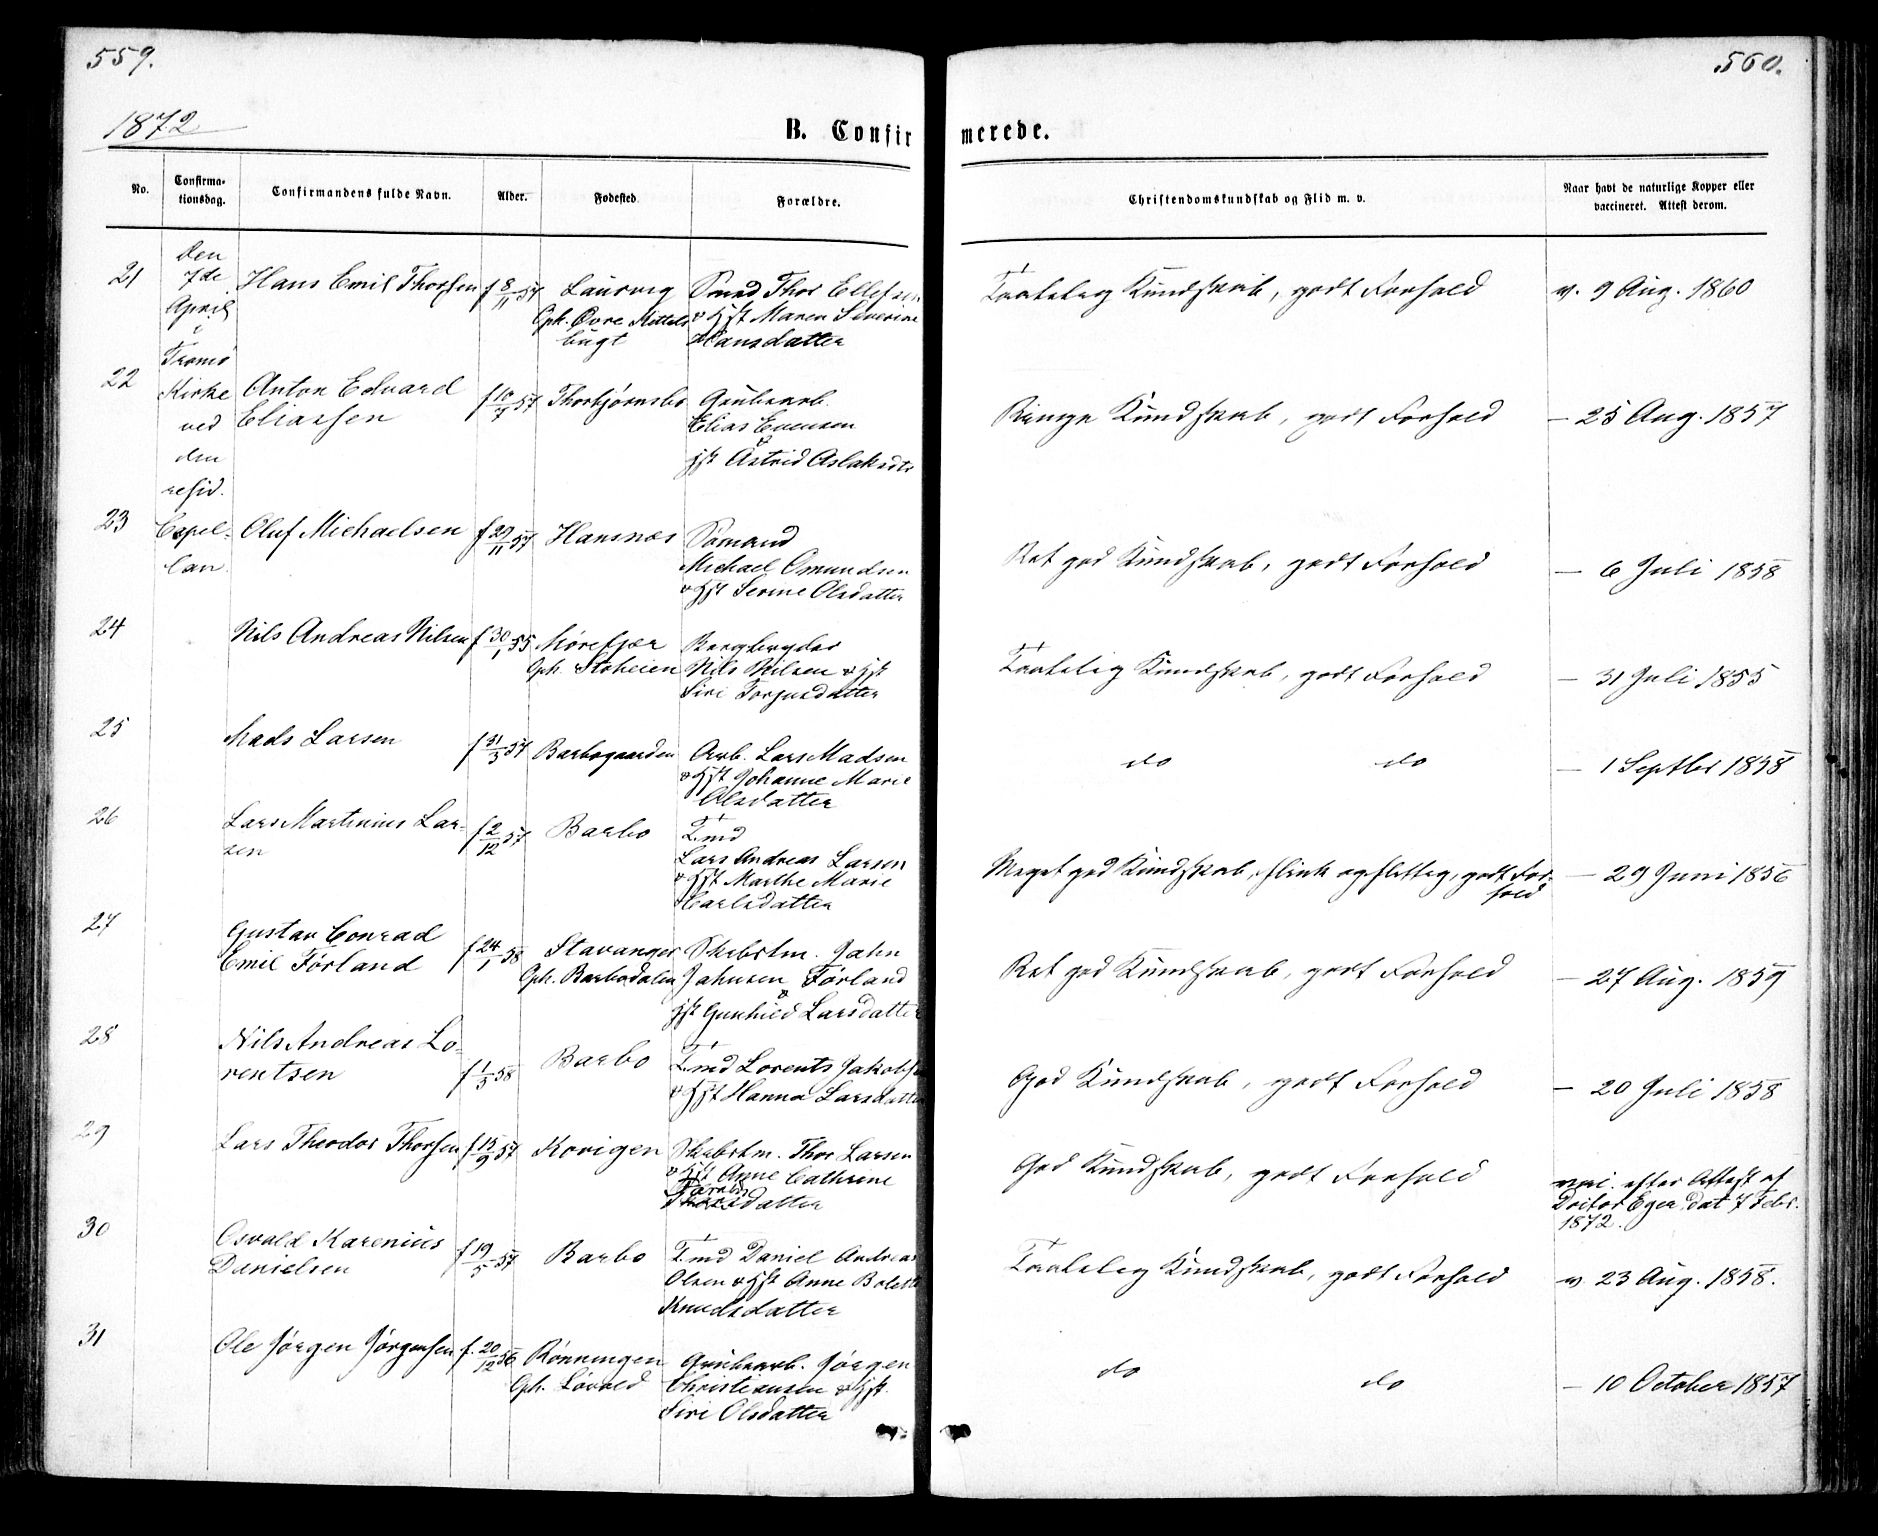 559.
560.
1872
B. Confir merede.
No.
Confirma-
tionsdag.
Confirmandens fulde Navn.
Alder.
Fødested
Forældre.
Christendomskundskab og Flid m. v.
Naar havt de naturlige Kopper eller
vaccineret. Attest derom.
Den
7de
April
i
Tromø
Kirke
ved
den
resid.
Capel-
lan.
21 Hans Emil Thorsen f 8/11 57 Laurvig Sømd Thor Ellefsen Taalelig Kundskab, godt Forhold v. 9 Aug. 1860
Oph. Øvre Kittels & Hst Maren Severine
bugt Hansdatter
22 Anton Edvard f 10/7 57 Thorbjørnsbo Grubearb. Ringe Kundskab, godt Forhold — 25 Aug. 1857
Eliassen Elias Evensen
&
Hst Astrid Aslaksdtr
23 Oluf Michaelsen f 29/11 57 Hansnæs Sømand Ret god Kundskab, godt Forhold — 6 Juli 1858
Michael Omundsen
& Hst Serine Olsdatter
24 Nils Andreas Nilsen f 30/1 55 Mørefjær Bergbryder Taalelig Kundskab, godt Forhold — 31 Juli 1855
Oph. Stoheien Nils Nilsen & Hst
Siri Torjusdatter
25 Mads Larsen f 31/3 57 Barbogaarden Arb. Lars Madsen do do — 1 Septbr 1858
& Hst Johanne Marie
Olsdatter
26 Lars Martinius Lar- f 2/12 57 Barbo Tmd Meget god Kundskab, flink og flittig, godt For-
hold — 29 Juni 1856
sen Lars Andreas Larsen
& Hst Marthe Marie
Carlsdatter
27 Gustav Conrad f 24/1 58 Stavanger Skibstm. John Ret god Kundskab, godt Forhold — 27 Aug. 1859
Emil Førland Oph. Barbodalen Johnsen Førland
&
Hst Gunhild Larsdatter
28 Nils Andreas Lo- f 1/3 58 Barbo Tmd Lorents Jakobsen God Kundskab, godt Forhold — 20 Juli 1858
rentsen & Hst Hanna Larsdatter
29 Lars Theodor Thorsen f 15/9 57 Kovigen Skibstm. Thor Larsen God Kundskab, godt Forhold vac. efter Attest af
& Hst Anne Cathrine Doctor Eger dat 7 Febr.
datter 1872.
30 Osvald Karenius f 19/5 57 Barbo Tmd Daniel Andreas Taalelig Kundskab, godt Forhold v. 23 Aug. 1858.
Danielsen Olsen & Hst Anne Bolette
Knudsdatter
31 Ole Jørgen Jørgensen f. 20/12 56 Rønningen Grubearb. Jørgen do do — 10 October 1857
Oph. Løvold Christiansen & Hst.
Siri Olsdatter